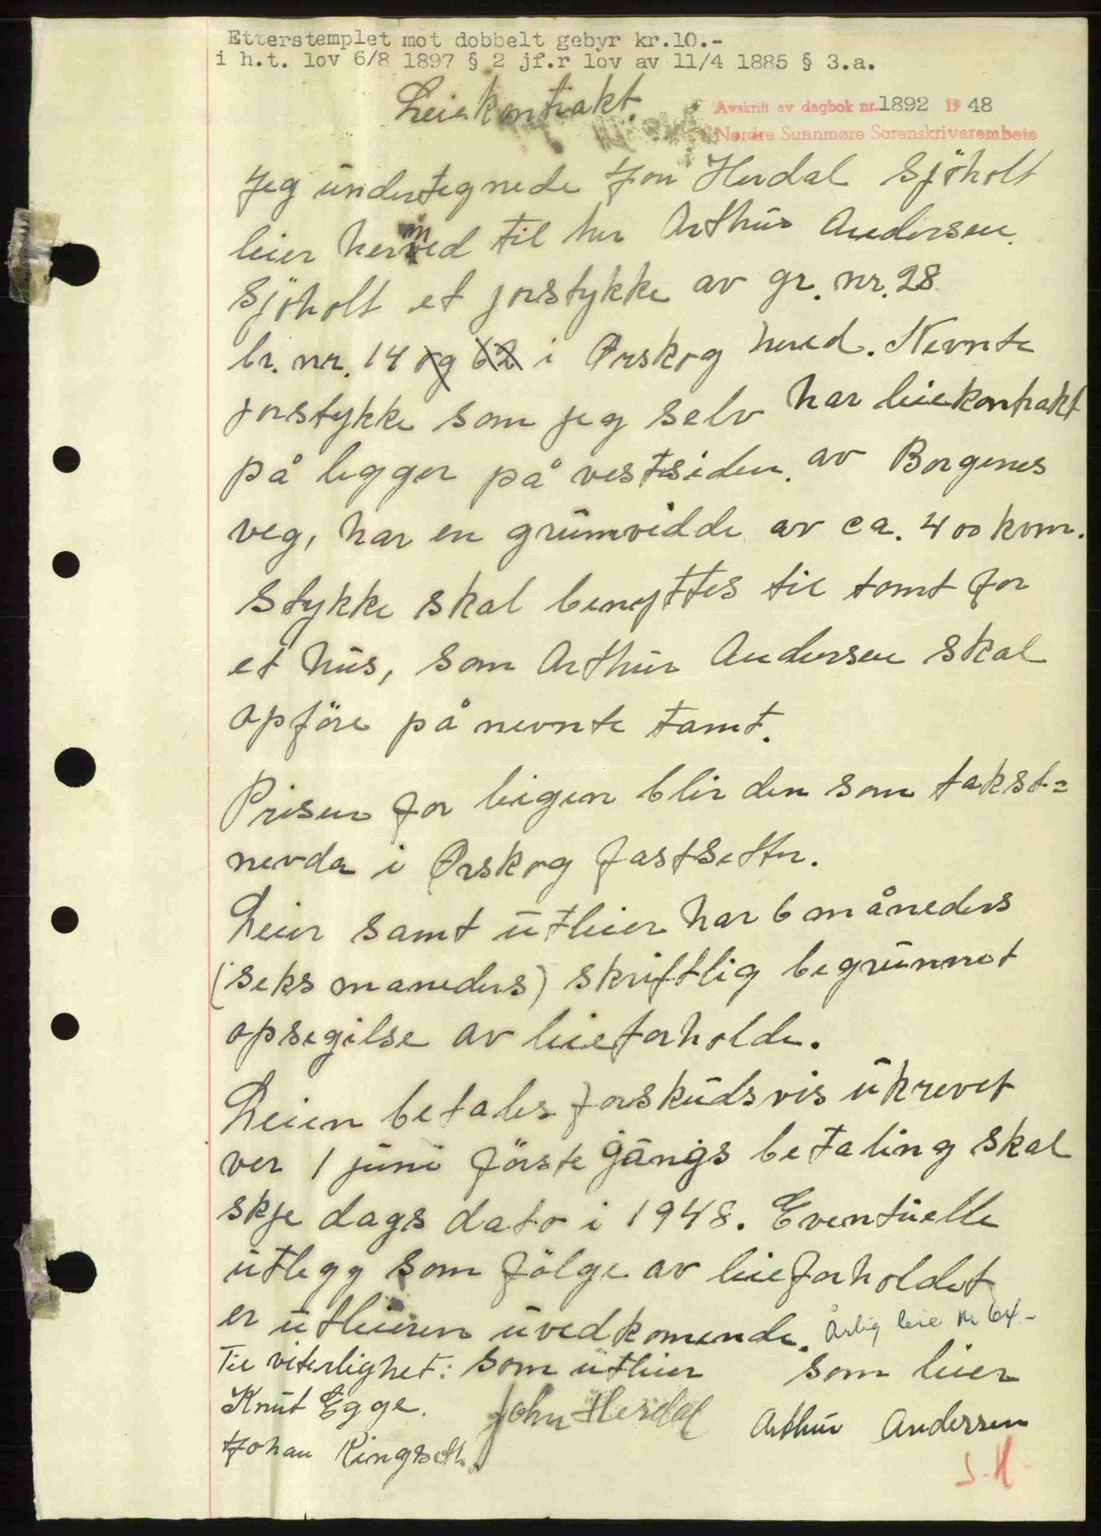 Etterstemplet mot dobbelt gebyr kr.10.-
i h.t. lov 6/8 1897 § 2 jf.r lov av 11/4 1885 § 3.a.
Leiekontrakt.
Avskrift av dagbok nr. 1892 19 48
Nordre Sunnmøre Sorenskriverembete
Jeg undertegnede Jon Herdal Sjöholt
leier herved til hr Arthur Andersen.
Sjöholt et jorstykke av gr. nr. 28
br. nr. 14 og 62 i Ørskog hered. Nevnte
jorstykke som jeg selv har leiekontrakt
på ligger på vestsiden av Borgenes
veg, har en grunnvidde av ca. 400 kvm.
Stykke skal benyttes til tomt for
et hus, som Arthur Andersen skal
opföre på nevnte tomt.
Prisen for leigen blir den som takst=
nevda i Ørskog fastsetter.
Leier samt utleier har 6 måneders
(seks maneders) skriftlig begrunnet
opsegilse av leieforholde.
Leien betales forskudsvis ukrevet
ver 1 juni förste gangs betaling skal
skje dags dato i 1948. Eventuelle
utlegg som fölge av leieforholdet
er utleieren uvedkomende. Årlig leie kr 64.-
Til viterlighet: som utleier som leier
Knut Egge. John Herdal Arthur Andersen
Johan Ringseth.
S.H.